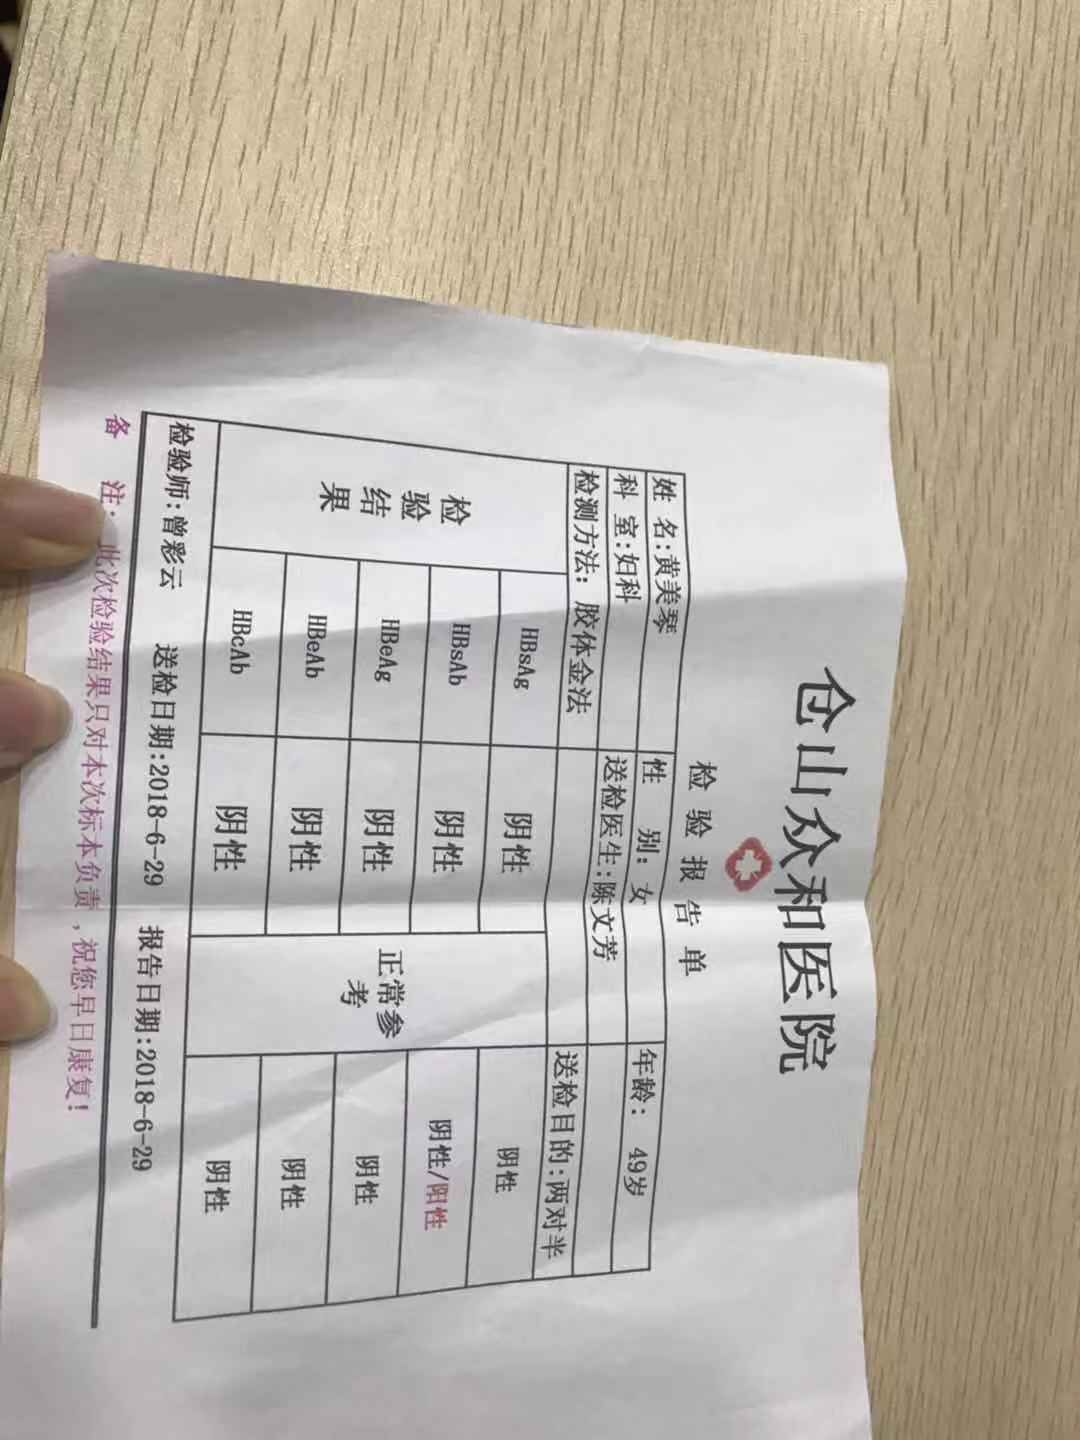 仓山众和医院
检验报告单
姓 名:黄美琴 性 别: 女 年龄: 49岁
科 室:妇科 送检医生:陈文芳
检测方法: 胶体金法 送检目的:两对半
检验结果 正常参考
HBsAg 阴性 阴性
HBsAb 阴性 阴性/阳性
HBeAg 阴性 阴性
HBeAb 阴性 阴性
HBcAb 阴性 阴性
检验师:曾彩云 送检日期:2018-6-29 报告日期:2018-6-29
备 注: 此次检验结果只对本次标本负责,祝您早日康复!